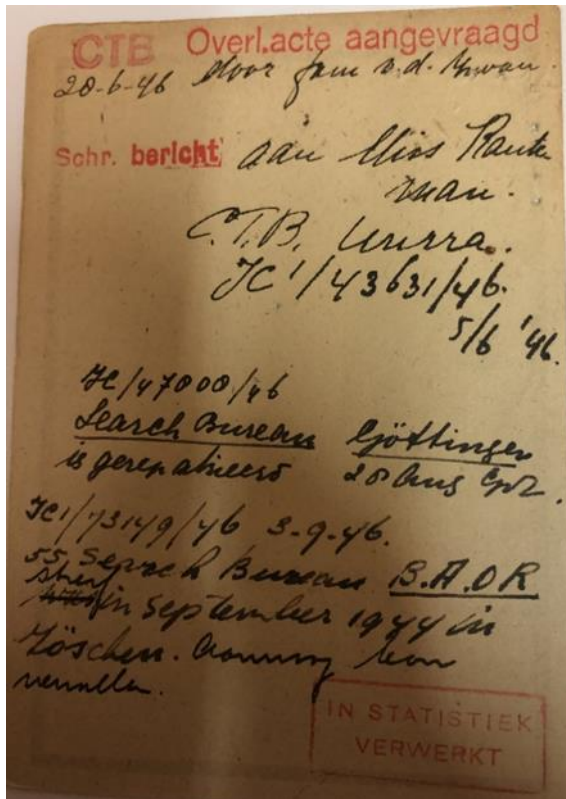 CTB Overl.acte aangevraagd
20-6-46 door fam v.d.
Schr. bericht aan Miss
man.
C.T.B. Unrra.
JC1/43631/46.
5/6 '46.
JC/47000/46
Search Bureau Göttingen
is gerepatrieerd 28 Aug
JC1/73149/46 3-9-46.
55 Search Bureau B.A.O.R
stierf in September 1944 in
kan
vervallen.
IN STATISTIEK
VERWERKT